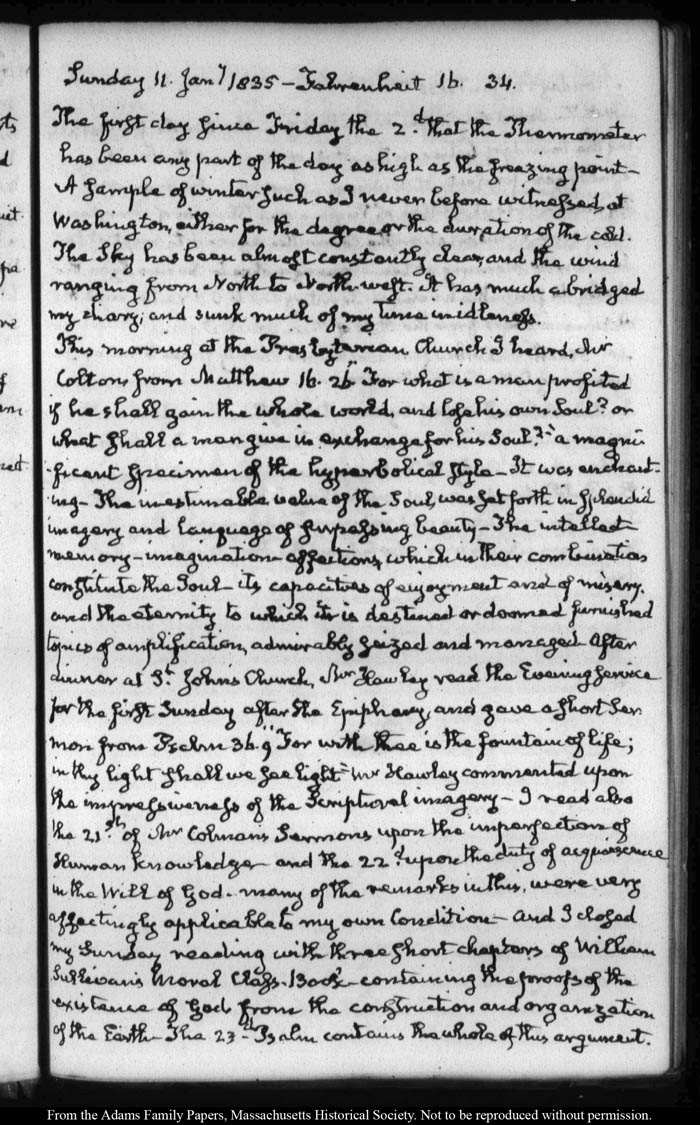 Sunday 11. Jany. 1835 – Fahrenheit 16. 34.
The first day since Friday the 2.d that the Thermometer
has been any part of the day as high as the freezing point –
A sample of winter such as I never before witnessed, at
Washington, either for the degree or the duration of the cold.
The Sky has been almost constantly clear, and the wind
ranging from North to North-west. It has much abridged
my diary; and sunk much of my time in idleness.
This morning at the Presbyterian Church I heard, Mr
Colton, from Matthew 16. 26 "For what is a man profited
if he shall gain the whole world, and lose his own Soul? or
what shall a man give in exchange for his Soul?" – a magni
ficent specimen of the hyperbolical style – It was enchant-
ing – The inestimable value of the Soul, was set forth in splendid
imagery and language of surpassing beauty – The intellect
memory – imagination – affections, which in their combination
constitute the Soul – its capacities of enjoyment and of misery.
and the eternity to which it is destined or doomed furnished
topics of amplification, admirably seized and managed. After
dinner at St. John's Church, Mr Hawley read the Evening service
for the first Sunday after the Epiphany, and gave a short Ser
mon from Psalm 36. 9 "For with thee is the fountain of life;
in thy light shall we see light" – Mr Hawley commented upon
the impressiveness of the Scriptural imagery – I read also
the 21st of Mr Colman's Sermons upon the imperfection of
Human knowledge – and the 22d upon the duty of acquiescence
in the Will of God. many of the remarks in this, were very
affectingly applicable to my own Condition – and I closed
my Sunday reading with three short chapters of William
Sullivan's Moral Class-Book – containing the proofs of the
existence of God from the construction and organization
of the Earth – The 23d Psalm contains the whole of this argument.
From the Adams Family Papers, Massachusetts Historical Society. Not to be reproduced without permission.